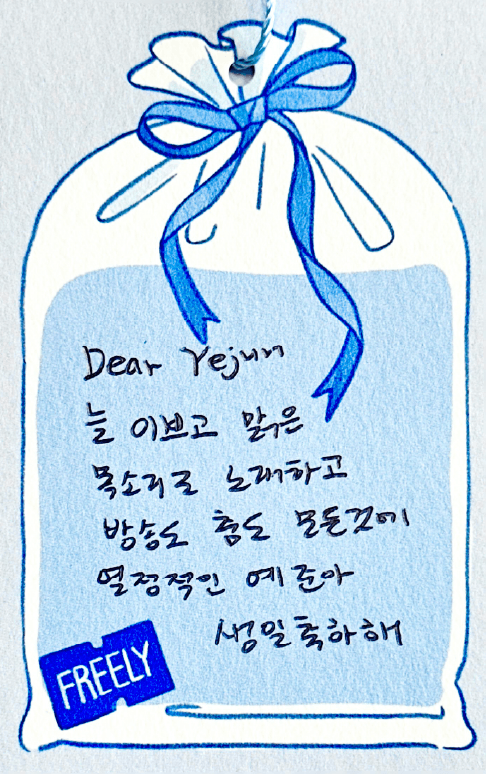 Dear Yejun
늘 이쁘고 맑은
목소리로 노래하고
방송도 춤도 모든것에
열정적인 예준아
생일축하해
FREELY